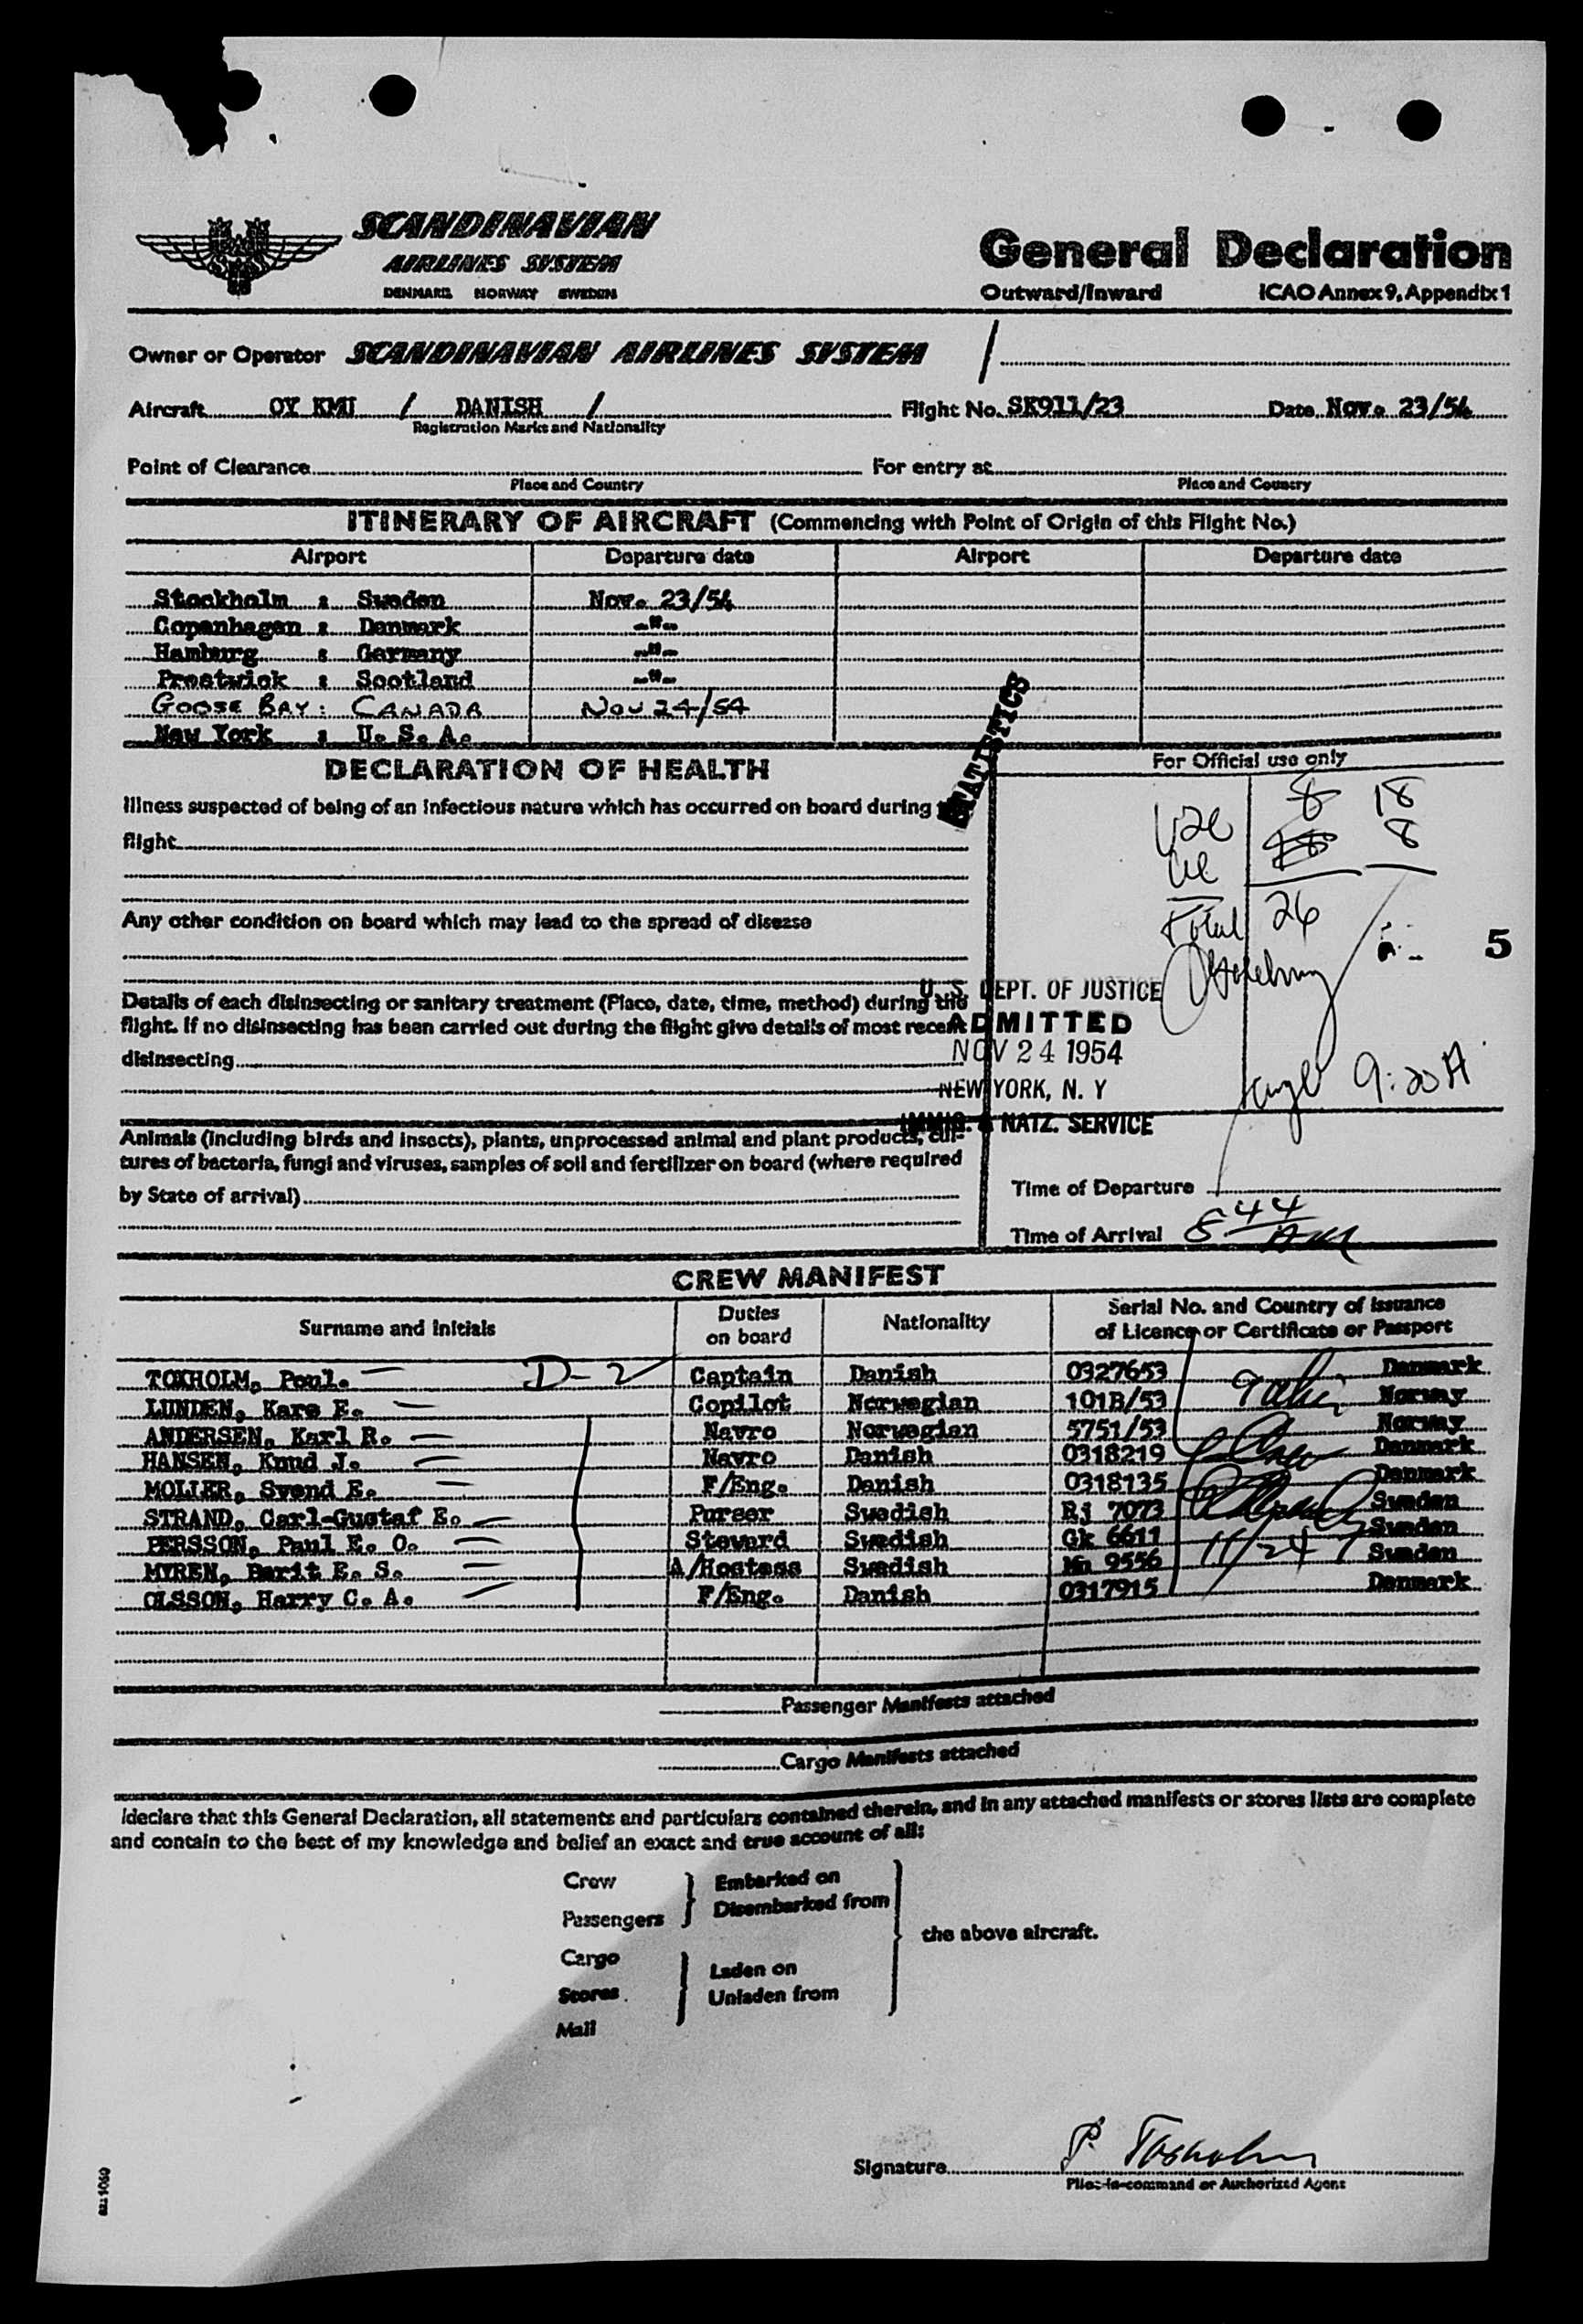 SCANDINAVIAN
AIRLINES SYSTEM
DENMARK NORWAY SWEDEN
General Declaration
Outward/Inward ICAO Annex 9, Appendix 1
Owner or Operator SCANDINAVIAN AIRLINES SYSTEM /
Aircraft OY KMU / DANISH / Flight No. SK911/23 Date Nov. 23/54
Registration Marks and Nationality
Point of Clearance For entry at
Place and Country Place and Country
ITINERARY OF AIRCRAFT (Commencing with Point of Origin of this Flight No.)
Airport Departure date Airport Departure date
Stockholm : Sweden Nov. 23/54
Copenhagen : Denmark -"-
Hamburg : Germany -"-
Prestwick : Scotland -"-
GOOSE BAY : CANADA NOV 24/54
New York : U. S. A.
STATISTICS
DECLARATION OF HEALTH
For Official use only
Illness suspected of being of an infectious nature which has occurred on board during
flight
8 18
8
Total 26
5
Any other condition on board which may lead to the spread of disease
Details of each disinsecting or sanitary treatment (Place, date, time, method) during the
flight. If no disinsecting has been carried out during the flight give details of most recent
disinsecting
U. S. DEPT. OF JUSTICE
ADMITTED
NOV 24 1954
NEW YORK, N. Y
IMMIG. & NATZ. SERVICE
9:20 A
Animals (including birds and insects), plants, unprocessed animal and plant products, cul-
tures of bacteria, fungi and viruses, samples of soil and fertilizer on board (where required
by State of arrival)
Time of Departure
Time of Arrival 8 44 AM
CREW MANIFEST
Surname and Initials Duties on board Nationality Serial No. and Country of Issuance of Licence or Certificate or Passport
TOXHOLM, Poul. D-2 Captain Danish 0327653 Denmark
LUNDEN, Kare E. Copilot Norwegian 101B/53 Norway
ANDERSEN, Karl R. Navro Norwegian 5751/53 Norway
HANSEN, Knud J. Navro Danish 0318219 Denmark
MOLLER, Svend E. F/Eng. Danish 0318135 Denmark
STRAND, Carl-Gustaf E. Purser Swedish Rj 7073 Sweden
PERSSON, Paul E. O. Steward Swedish Gk 6611 Sweden
MYREN, Berit E. S. A/Hostess Swedish Mn 9556 11/24 Sweden
OLSSON, Harry C. A. F/Eng. Danish 0317915 Denmark
Passenger Manifests attached
Cargo Manifests attached
I declare that this General Declaration, all statements and particulars contained therein, and in any attached manifests or stores lists are complete
and contain to the best of my knowledge and belief an exact and true account of all:
Crew
Passengers
Embarked on
Disembarked from
Cargo
Stores
Mail
Laden on
Unladen from
the above aircraft.
Signature P. Toxholm
Pilot-in-command or Authorized Agent